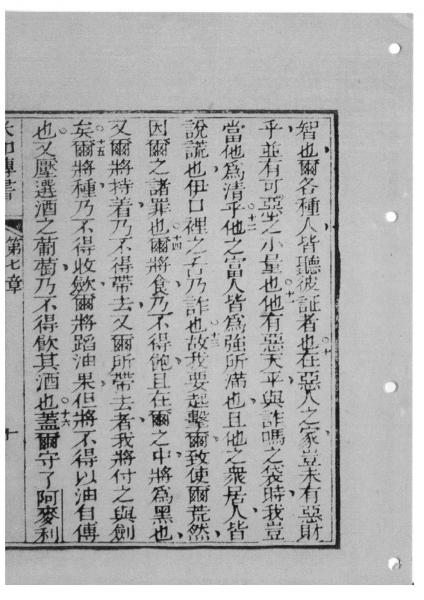 智也爾各種人皆聽彼証者也○十在惡人之家豈未有惡財
乎並有可惡窄之小量也○十一他有惡天平與詐嗎之袋時我豈
當他為清乎○十二他之富人皆為強所滿也且他之衆居人皆
說謊也伊口裡之舌乃詐也○十三故我要起擊爾致使爾荒然
因爾之諸罪也○十四爾將食乃不得飽且在爾之中將為黑也
又爾將持着乃不得帶去又爾所帶去者我將付之與劍
矣○十五爾將種乃不得收歛爾將蹈油果但將不得以油自傅
也○又壓選酒之葡萄乃不得飲其酒也○十六蓋爾守了阿麥利
米加傳書 第七章 十